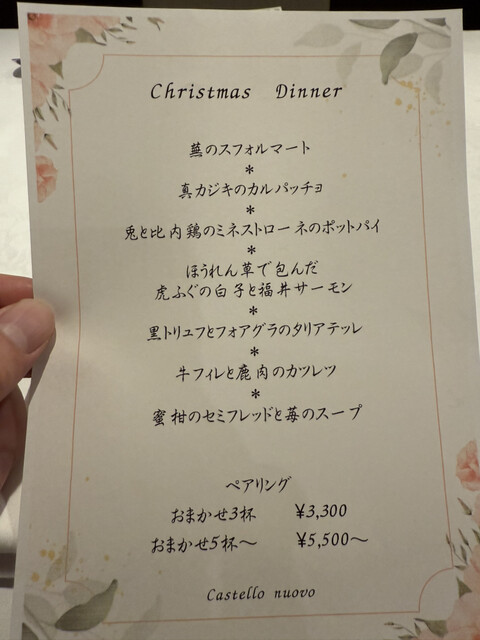 Christmas Dinner
蕪のスフォルマート
*
真カジキのカルパッチョ
*
兎と比内鶏のミネストローネのポットパイ
*
ほうれん草で包んだ
虎ふぐの白子と福井サーモン
*
黒トリュフとフォアグラのタリアテッレ
*
牛フィレと鹿肉のカツレツ
*
蜜柑のセミフレッドと苺のスープ
ペアリング
おまかせ3杯 ¥3,300
おまかせ5杯〜 ¥5,500〜
Castello nuovo